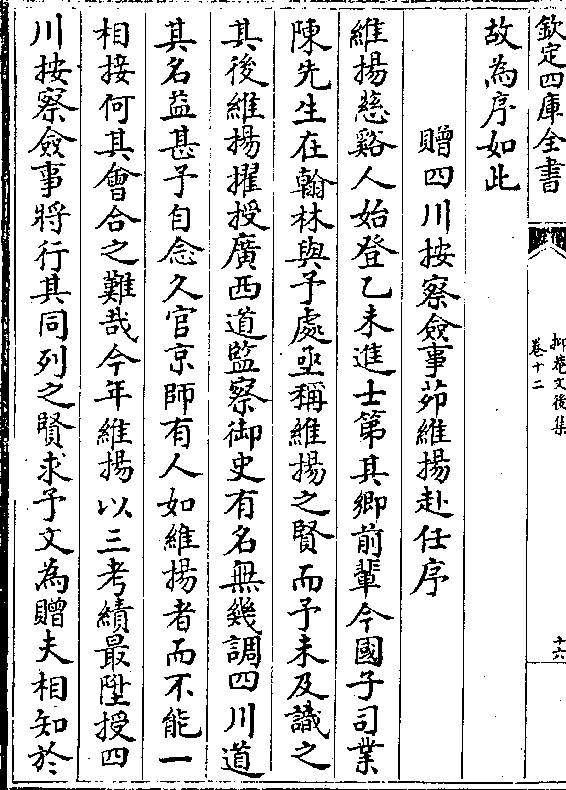 欽定四庫全書
抑菴文後集
卷十二
十六
故為序如此
贈四川按察僉事茆維揚赴任序
維揚慈谿人始登乙未進士第其鄉前輩今國子司業
陳先生在翰林與予處亟稱維揚之賢而予未及識之
其後維揚擢授廣西道監察御史有名無幾調四川道
其名益甚予自念久官京師有人如維揚者而不能一
相接何其會合之難哉今年維揚以三考績最陞授四
川按察僉事將行其同列之賢求予文為贈夫相知於